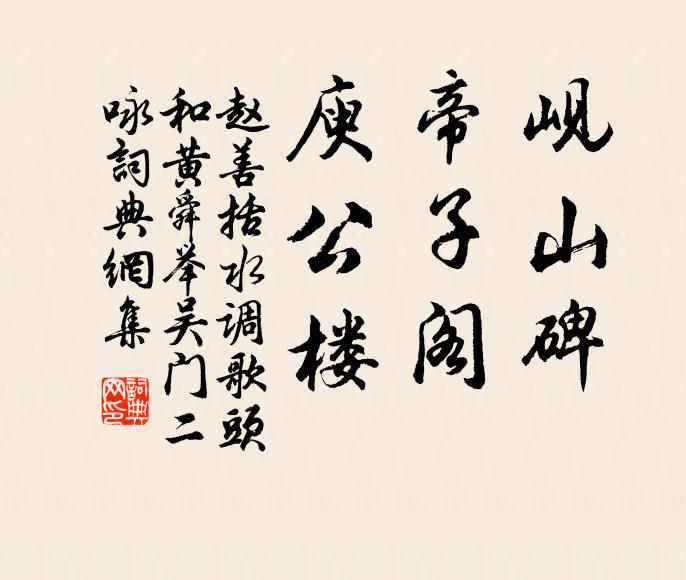 岘山碑
帝子阁
庾公楼
赵善括水调歌头
和黄舜举吴门二
咏詞典網集
詞典网印